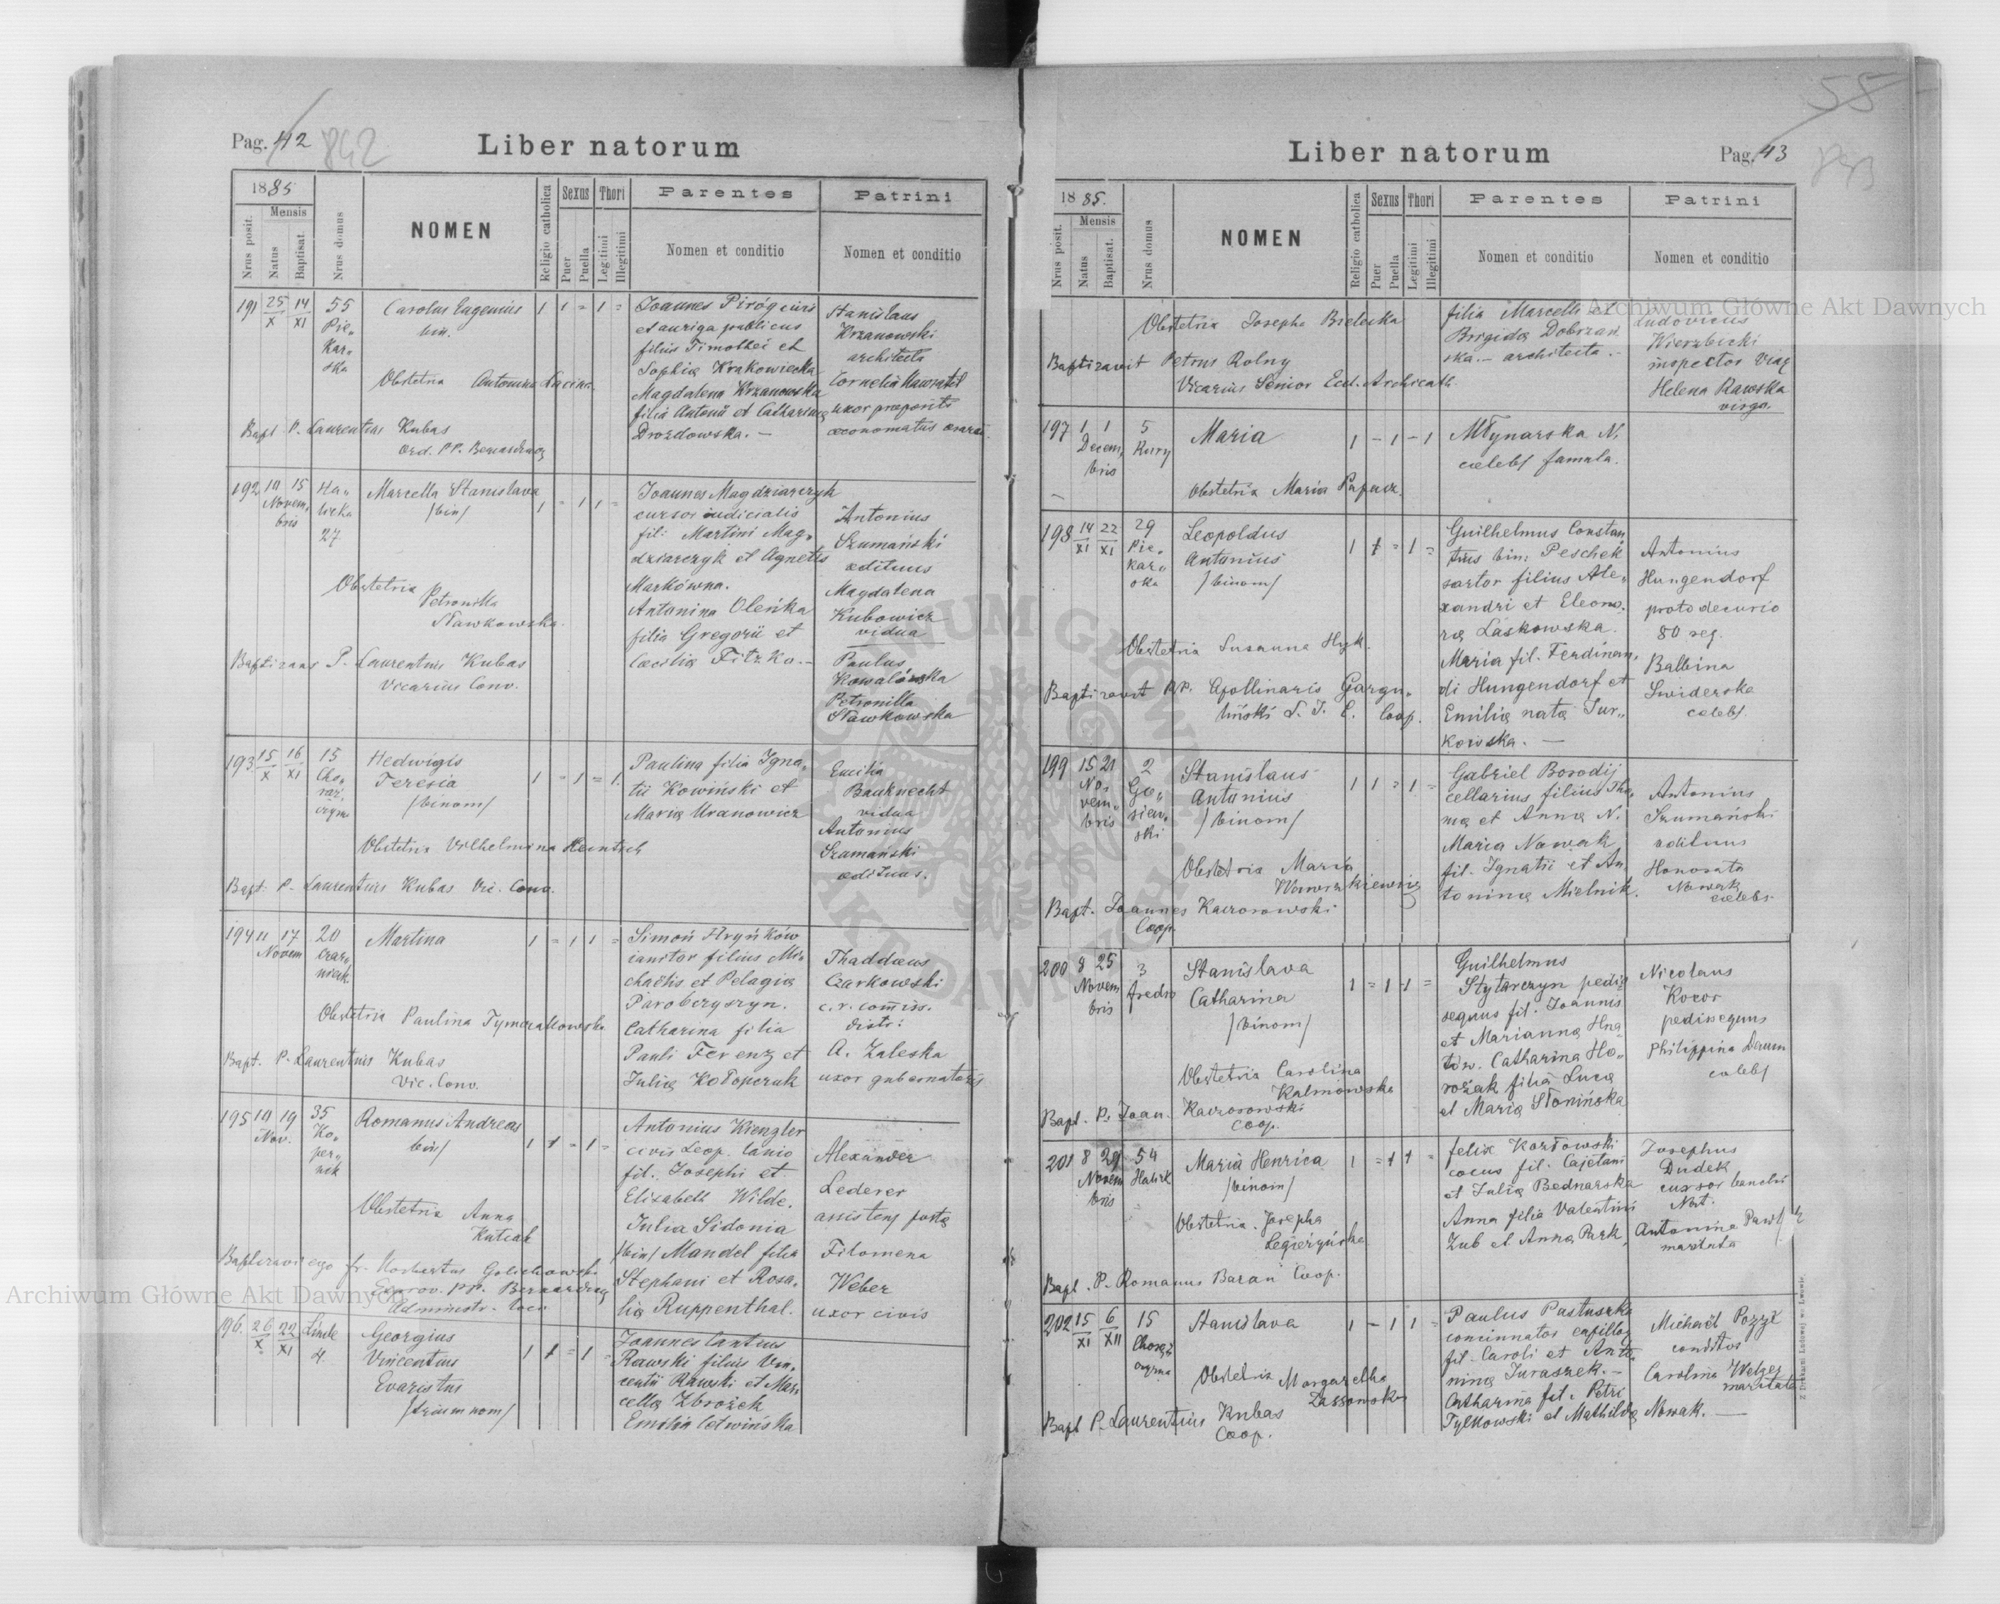 Pag. 42
842
Liber natorum
1885
Mensis
Nrus posit.
Natus
Baptisat.
Nrus domus
NOMEN
Religio catholica
Sexus
Puer
Puella
Thori
Legitimi
Illegitimi
Parentes
Nomen et conditio
Patrini
Nomen et conditio
191 25/X 14/XI 55 Pie„
Kar„
ska
Carolus Eugenius
bin.
1 1 = 1 =
Obstetrix Antonina
Bapt. P. Laurentius Kubas
Ord. PP. Bernardinor
Joannes Piróg civis
et auriga publicus
filius Timothei et
Sophiæ Krakowiecka
Magdalena Krzanowska
filia Antonii et Catharinæ
Drozdowska. —
Stanislaus
Krzanowski
architecta
Cornelia Nawratil
uxor præpositi
œconomatus
192 10 15 Novem„
bris
Ha„
licka
27
Marcella Stanislava
/bin/
1 = 1 1 =
Obstetrix
Petronilla
Nawkowska.
Baptizans P. Laurentius Kubas
Vicarius Conv.
Joannes Magdziarczyk
cursor iudicialis
fil: Martini Mag„
dziarczyk et Agnetis
Markówna.
Antonina Oleńka
filia Gregorii et
Cæcilia Fitzko. —
Antonius
Szumański
ædituus
Magdalena
Kubowicz
vidua
Paulus
Kowalówka
Petronilla
Nawkowska
193 15/X 16/XI 15
Cho„
rąż„
czyzn
Hedwigis
Teresia
/binom/
1 = 1 = 1.
Obstetrix Vilhelmina Heintsch
Bapt. P. Laurentius Kubas Vic. Conv.
Paulina filia Igna„
tii Kowiński et
Maria Uranowicz
Emilia
Bauknecht
vidua
Antonius
Szumański
ædituus.
194 11 17 Novem
20
Czar„
nieck
Martina
1 = 1 1 =
Obstetrix Paulina Tymczakowska
Bapt. P. Laurentius Kubas
Vic. Conv.
Simon Hryńków
ianitor filius Mi„
chaëlis et Pelagiæ
Paroberyszyn.
Catharina filia
Pauli Ferenz et
Julia Kołopczuk
Thaddæus
Czarkowski
c. r. comiss.
distr:
A. Zaleska
uxor gubernatoris
195 10 19 Nov.
35
Ko„
per„
nik
Romanus Andreas
bin/
1 1 = 1 =
Obstetrix Anna
Baptizavi ego fr. Norbertus Golichowski
Exprov. PP. Bernardinor
Administr. loci
Antonius Kiengler
civis Leop. lanio
fil. Josephi et
Elisabeth Wilde.
Julia Sidonia
/bin/ Mandel filia
Stephani et Rosa„
liæ Ruppenthal.
Alexander
Lederer
assistens postæ
Filomena
Weber
uxor civis
196. 26/X 22/XI Linde
4.
Georgius
Vincentius
Evaristus
/trium nom/
1 1 = 1 =
Joannes Cantius
Rawski filius Vin„
centii Rawski et Mar„
cella Zbrożek
Emilia Cetwińska
58
Liber natorum
Pag. 43
843
1885.
Mensis
Nrus posit.
Natus
Baptisat.
Nrus domus
NOMEN
Religio catholica
Sexus
Puer
Puella
Thori
Legitimi
Illegitimi
Parentes
Nomen et conditio
Patrini
Nomen et conditio
Obstetrix Josepha Bielecka
Baptizavit Petrus Rolny
Vicarius Senior Eccl. Archicath.
filia Marcelli et
Brigida Dobrzań
ska. — architecta. —
Ludovicus
Wierzbicki
inspector viæ
Helena Rawska
virgo.
197 1 1 Decem„
bris
5
Kury
Maria
1 — 1 — 1
Obstetrix Maria Papusz.
Młynarska N.
cælebs famula.
198 14/XI 22/XI 29
Pie„
kar„
ska
Leopoldus
Antonius
/binom/
1 1 = 1 =
Obstetrix Susanna Hyk.
Baptizavit PP. Apollinaris Gargu„
liński S. T. L. Coop.
Guilhelmus Constan
tinus bin: Peschek
sartor filius Ale„
xandri et Eleono„
ræ Laskowska.
Maria fil. Ferdinan„
di Hungendorf et
Emiliæ nata Tur„
kowska. —
Antonius
Hungendorf
proto decurio
80 reg.
Balbina
Swiderska
cælebs.
199 15 21 No„
vem„
bris
2
Gę„
siew„
ski
Stanislaus
Antonius
/binom/
1 1 = 1 =
Obstetrix Maria
Bapt. Joannes Kaczorowski
Coop.
Gabriel Borodij
cellarius filius Tho„
mæ et Anna N.
Maria Nowak
fil. Ignatii et An„
toninæ Mielnik.
Antonius
Szumański
ædituus
Honorata
Nowak
cælebs.
200 8 25 Novem
bris
3
Fredro
Stanislava
Catharina
/binom/
1 = 1 1 =
Obstetrix Carolina
Kalinowska
Bapt. P. Joan. Kaczorowski
Coop.
Guilhelmus
Stytarczyn pedis
sequus fil. Joannis
et Marianna Hna„
tów. Catharina Ho„
rożak filia Luca
et Maria Słonińska
Nicolaus
Kocor
pedissequus
Philippina Daum
cælebs
201 8 29 Novem
bris
54
Halick
Maria Henrica
/binom/
1 = 1 1 =
Obstetrix. Josepha
Legieżyńska.
Bapt. P. Romanus Baran Coop.
Felix Kozłowski
cocus fil. Cajetani
et Julia Bednarska
Anna filia Valentini
Zub et Anna Park.
Josephus
Dudek
cursor
Antonina Pawł
maritata
202 15/XI 6/XII 15
Chorąż
czyzna
Stanislava
1 — 1 1 =
Obstetrix Margaretha
Zassowska
Bapt P. Laurentius Kubas
Coop.
Paulus Pastuszka
concinnator capillor
fil. Caroli et Anto„
nina Juraszek. —
Catharina fil. Petri
Tylkowski et Mathilda Nowak. —
Michaël Pozyż
conditor
Carolina Welzer
maritata
Z Drukarni Ludowej we Lwowie.
Archiwum Główne Akt Dawnych
Archiwum Główne Akt Dawnych
ARCHIWUM GŁÓWNE AKT DAWNYCH